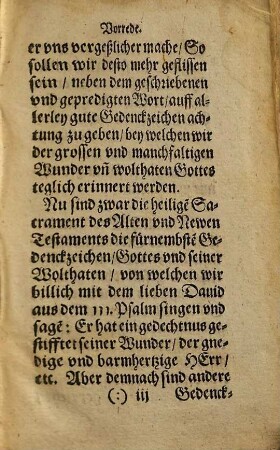 Vorrede.
er vns vergeßlicher mache/ So
sollen wir desto mehr geflissen
sein/ neben dem geschriebenen
vnd gepredigten Wort/ auff al-
lerley gute Gedenckzeichen ach-
tung zu geben/ bey welchen wir
der grossen vnd manchfaltigen
Wunder vñ wolthaten Gottes
teglich erinnert werden.
Nu sind zwar die heiligẽ Sa-
crament des Alten vnd Newen
Testaments die fürnembstẽ Ge-
denckzeichen/ Gottes vnd seiner
Wolthaten/ von welchen wir
billich mit dem lieben Dauid
aus dem 111. Psalm singen vnd
sagẽ: Er hat ein gedechtnus ge-
stifftet seiner Wunder/ der gne-
dige vnd barmhertzige HErr/
etc. Aber demnach sind andere
(:) iij Gedenck-